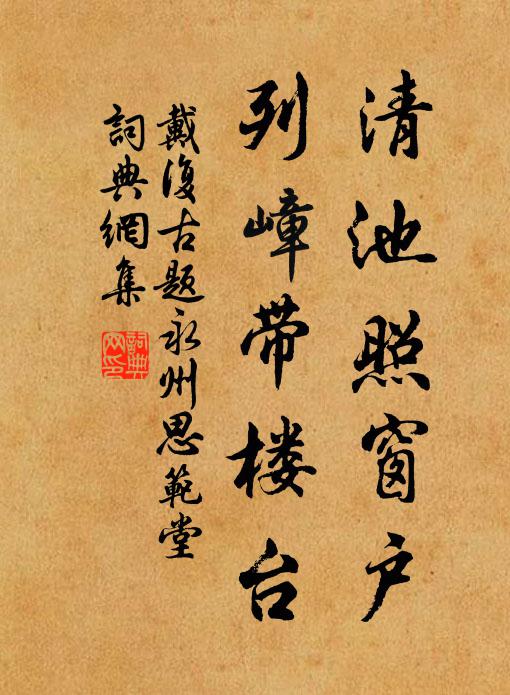 清池照窗户
列嶂带楼台
戴復古题永州思範堂
詞典網集
詞典
网印